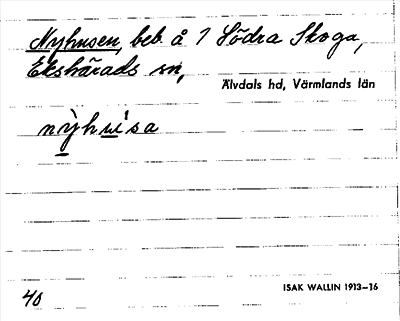 Nyhusen, beb. å 1 Södra Skoga,
Ekshärads sn,
Älvdals hd, Värmlands län
nỳhu̲ísa
40
ISAK WALLIN 1913–16